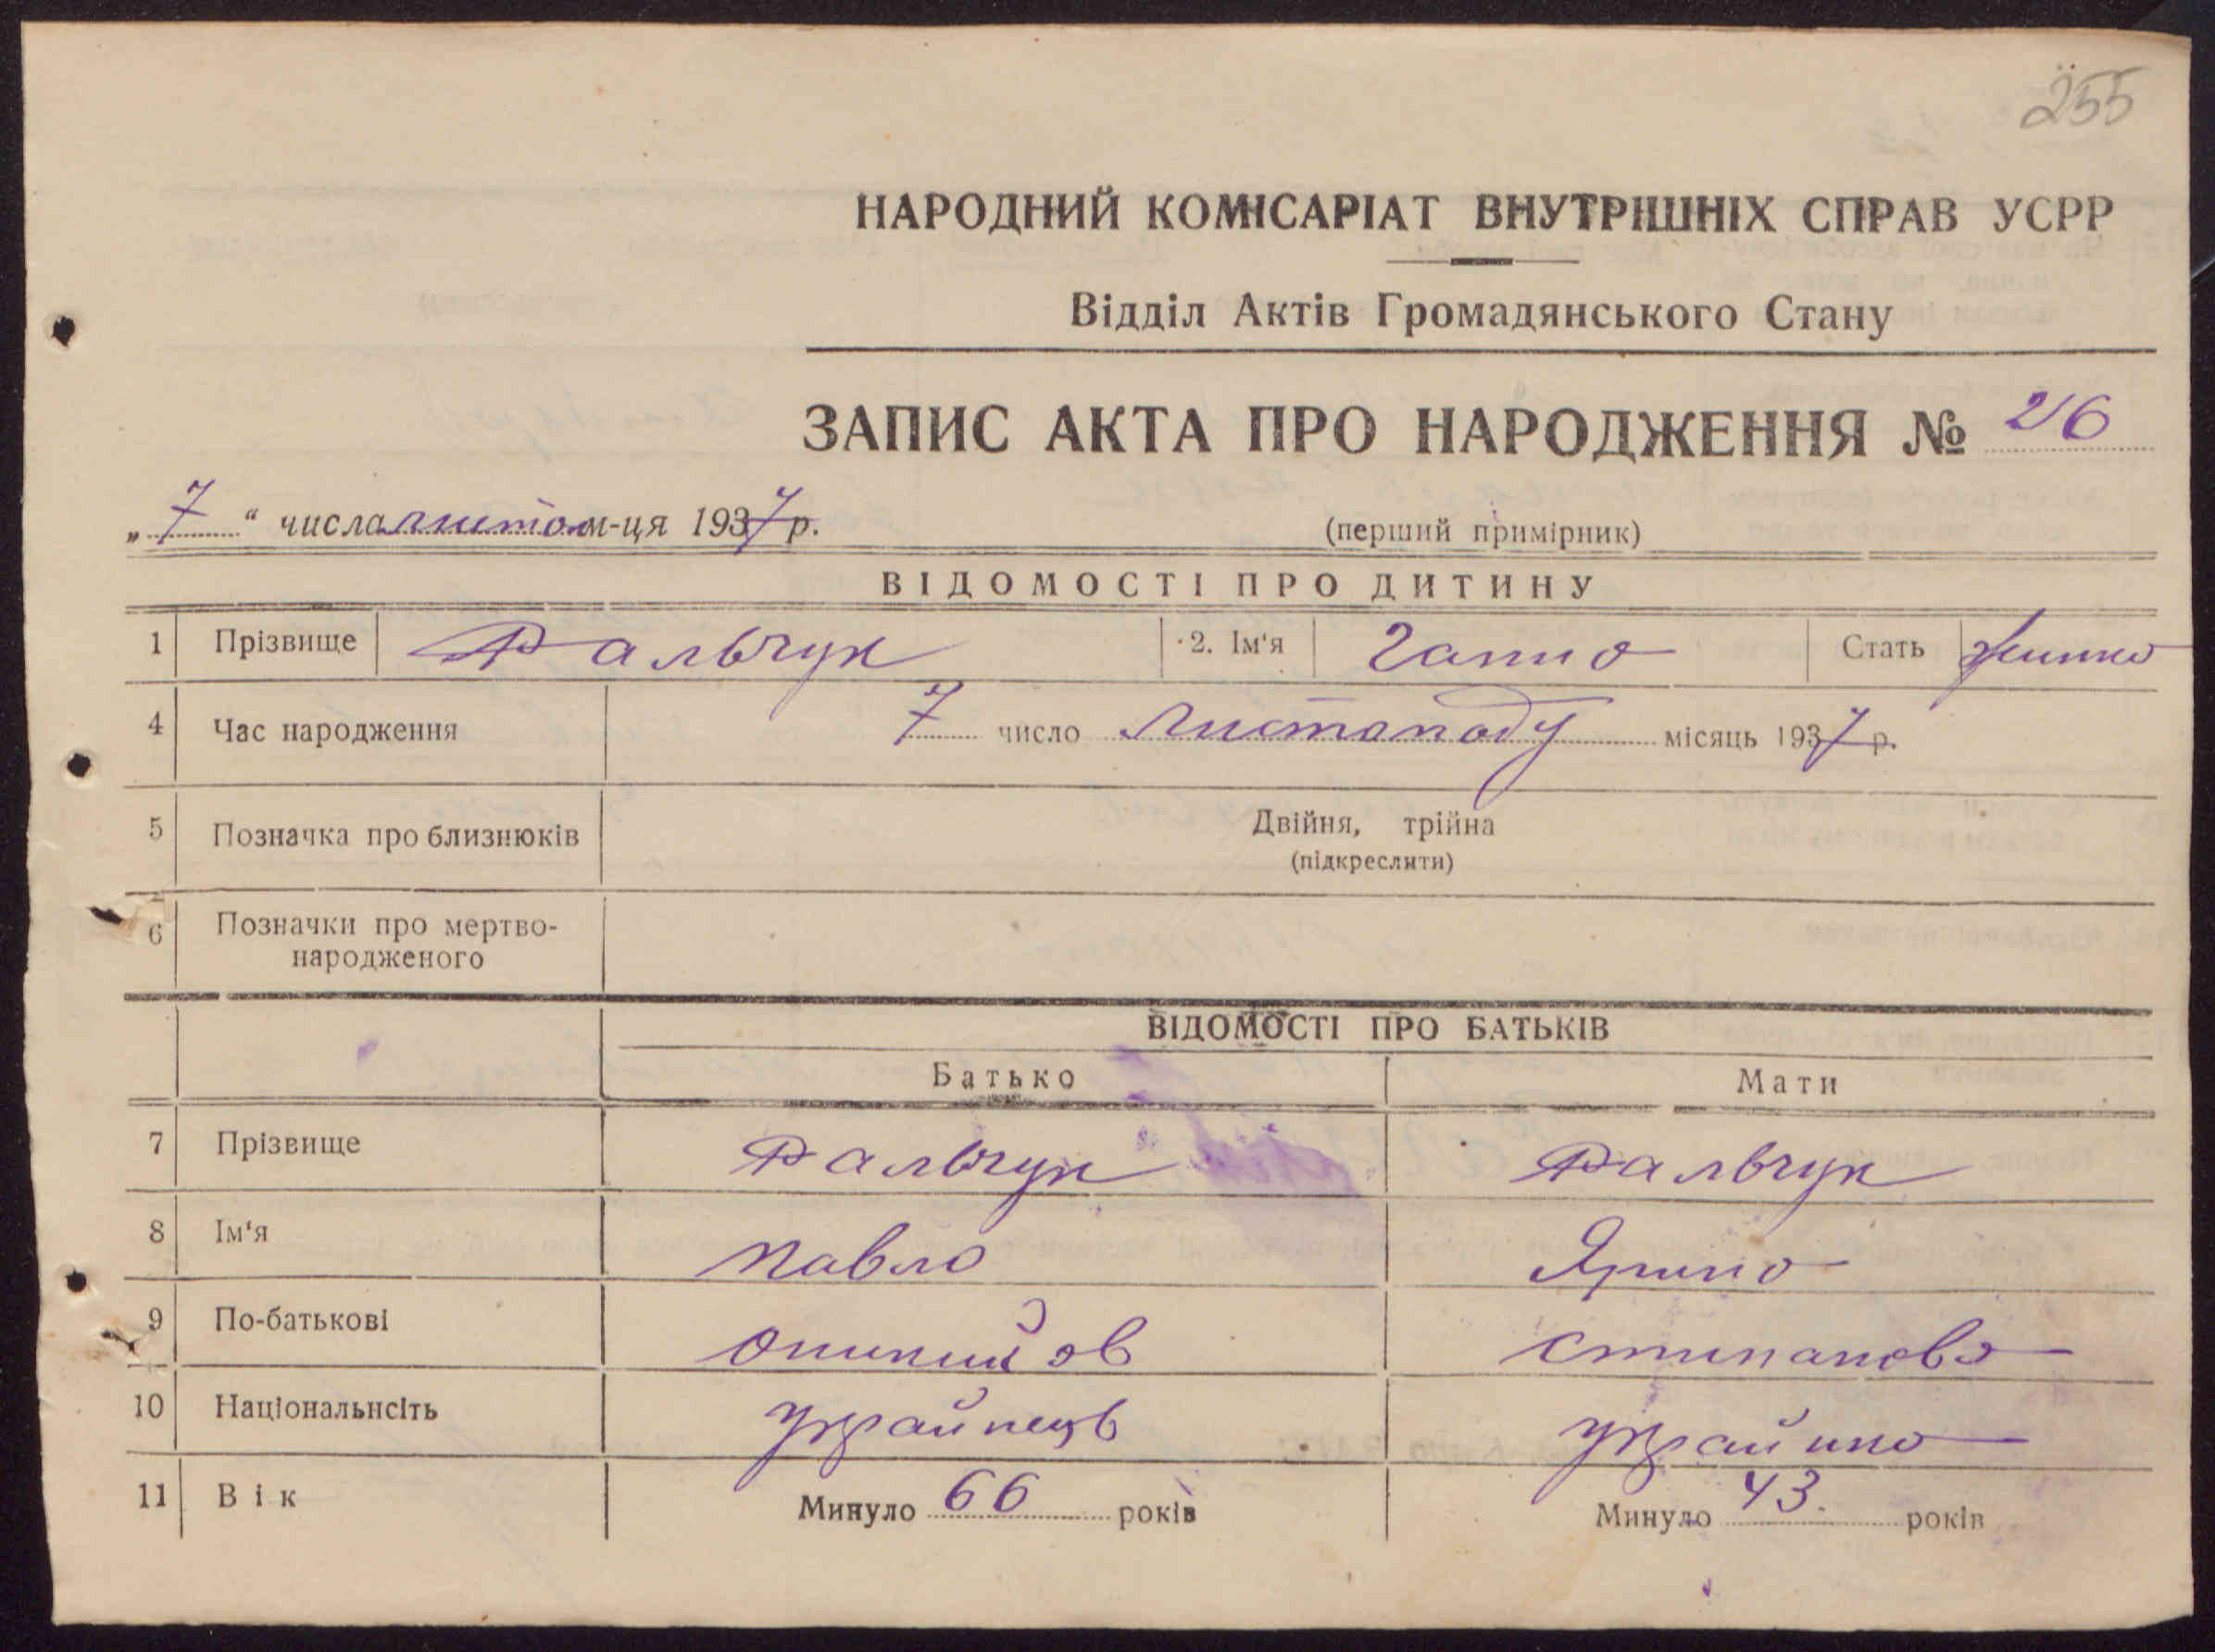 255
НАРОДНИЙ КОМІСАРІАТ ВНУТРІШНІХ СПРАВ УСРР
Відділ Актів Громадянського Стану
ЗАПИС АКТА ПРО НАРОДЖЕННЯ № 26
„ 7 “ числа листоп м-ця 1937 р.
(перший примірник)
ВІДОМОСТІ ПРО ДИТИНУ
1 Прізвище Фальчук 2. Ім'я Ганна Стать жинка
4 Час народження 7 число Листопаду місяць 1937 р.
5 Позначка про близнюків Двійня, трійна
(підкреслити)
6 Позначки про мертво-
народженого
ВІДОМОСТІ ПРО БАТЬКІВ
Батько Мати
7 Прізвище Фальчук Фальчук
8 Ім'я Павло Ярина
9 По-батькові Степанова
10 Національнсіть украйнець украйнка
11 Вік Минуло 66 років Минуло 43. років